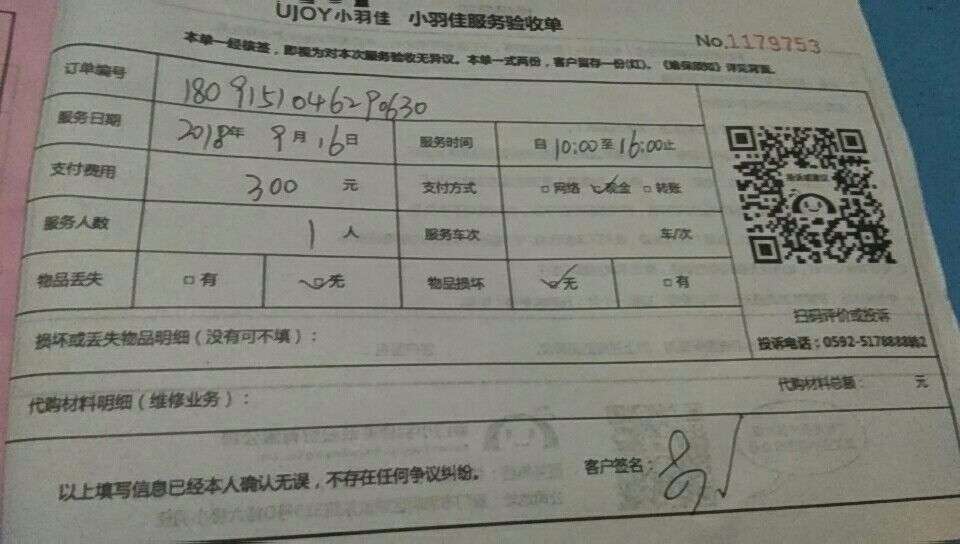 UJOY小羽佳 小羽佳服务验收单
No.1179753
本单一经核签，即视为对本次服务验收无异议。本单一式两份，客户留存一份(红)。《维保须知》详见背面。
订单编号 1809151046290630
服务日期 2018年 9月 16日 服务时间 自 10:00至16:00止
支付费用 300 元 支付方式 □网络 □现金 □转账
服务人数 1 人 服务车次 车/次
物品丢失 □有 □无 物品损坏 □无 □有
扫码评价或投诉
损坏或丢失物品明细（没有可不填）：
投诉电话：0592-5178888转2
代购材料总额： 元
代购材料明细（维修业务）：
以上填写信息已经本人确认无误，不存在任何争议纠纷。 客户签名：